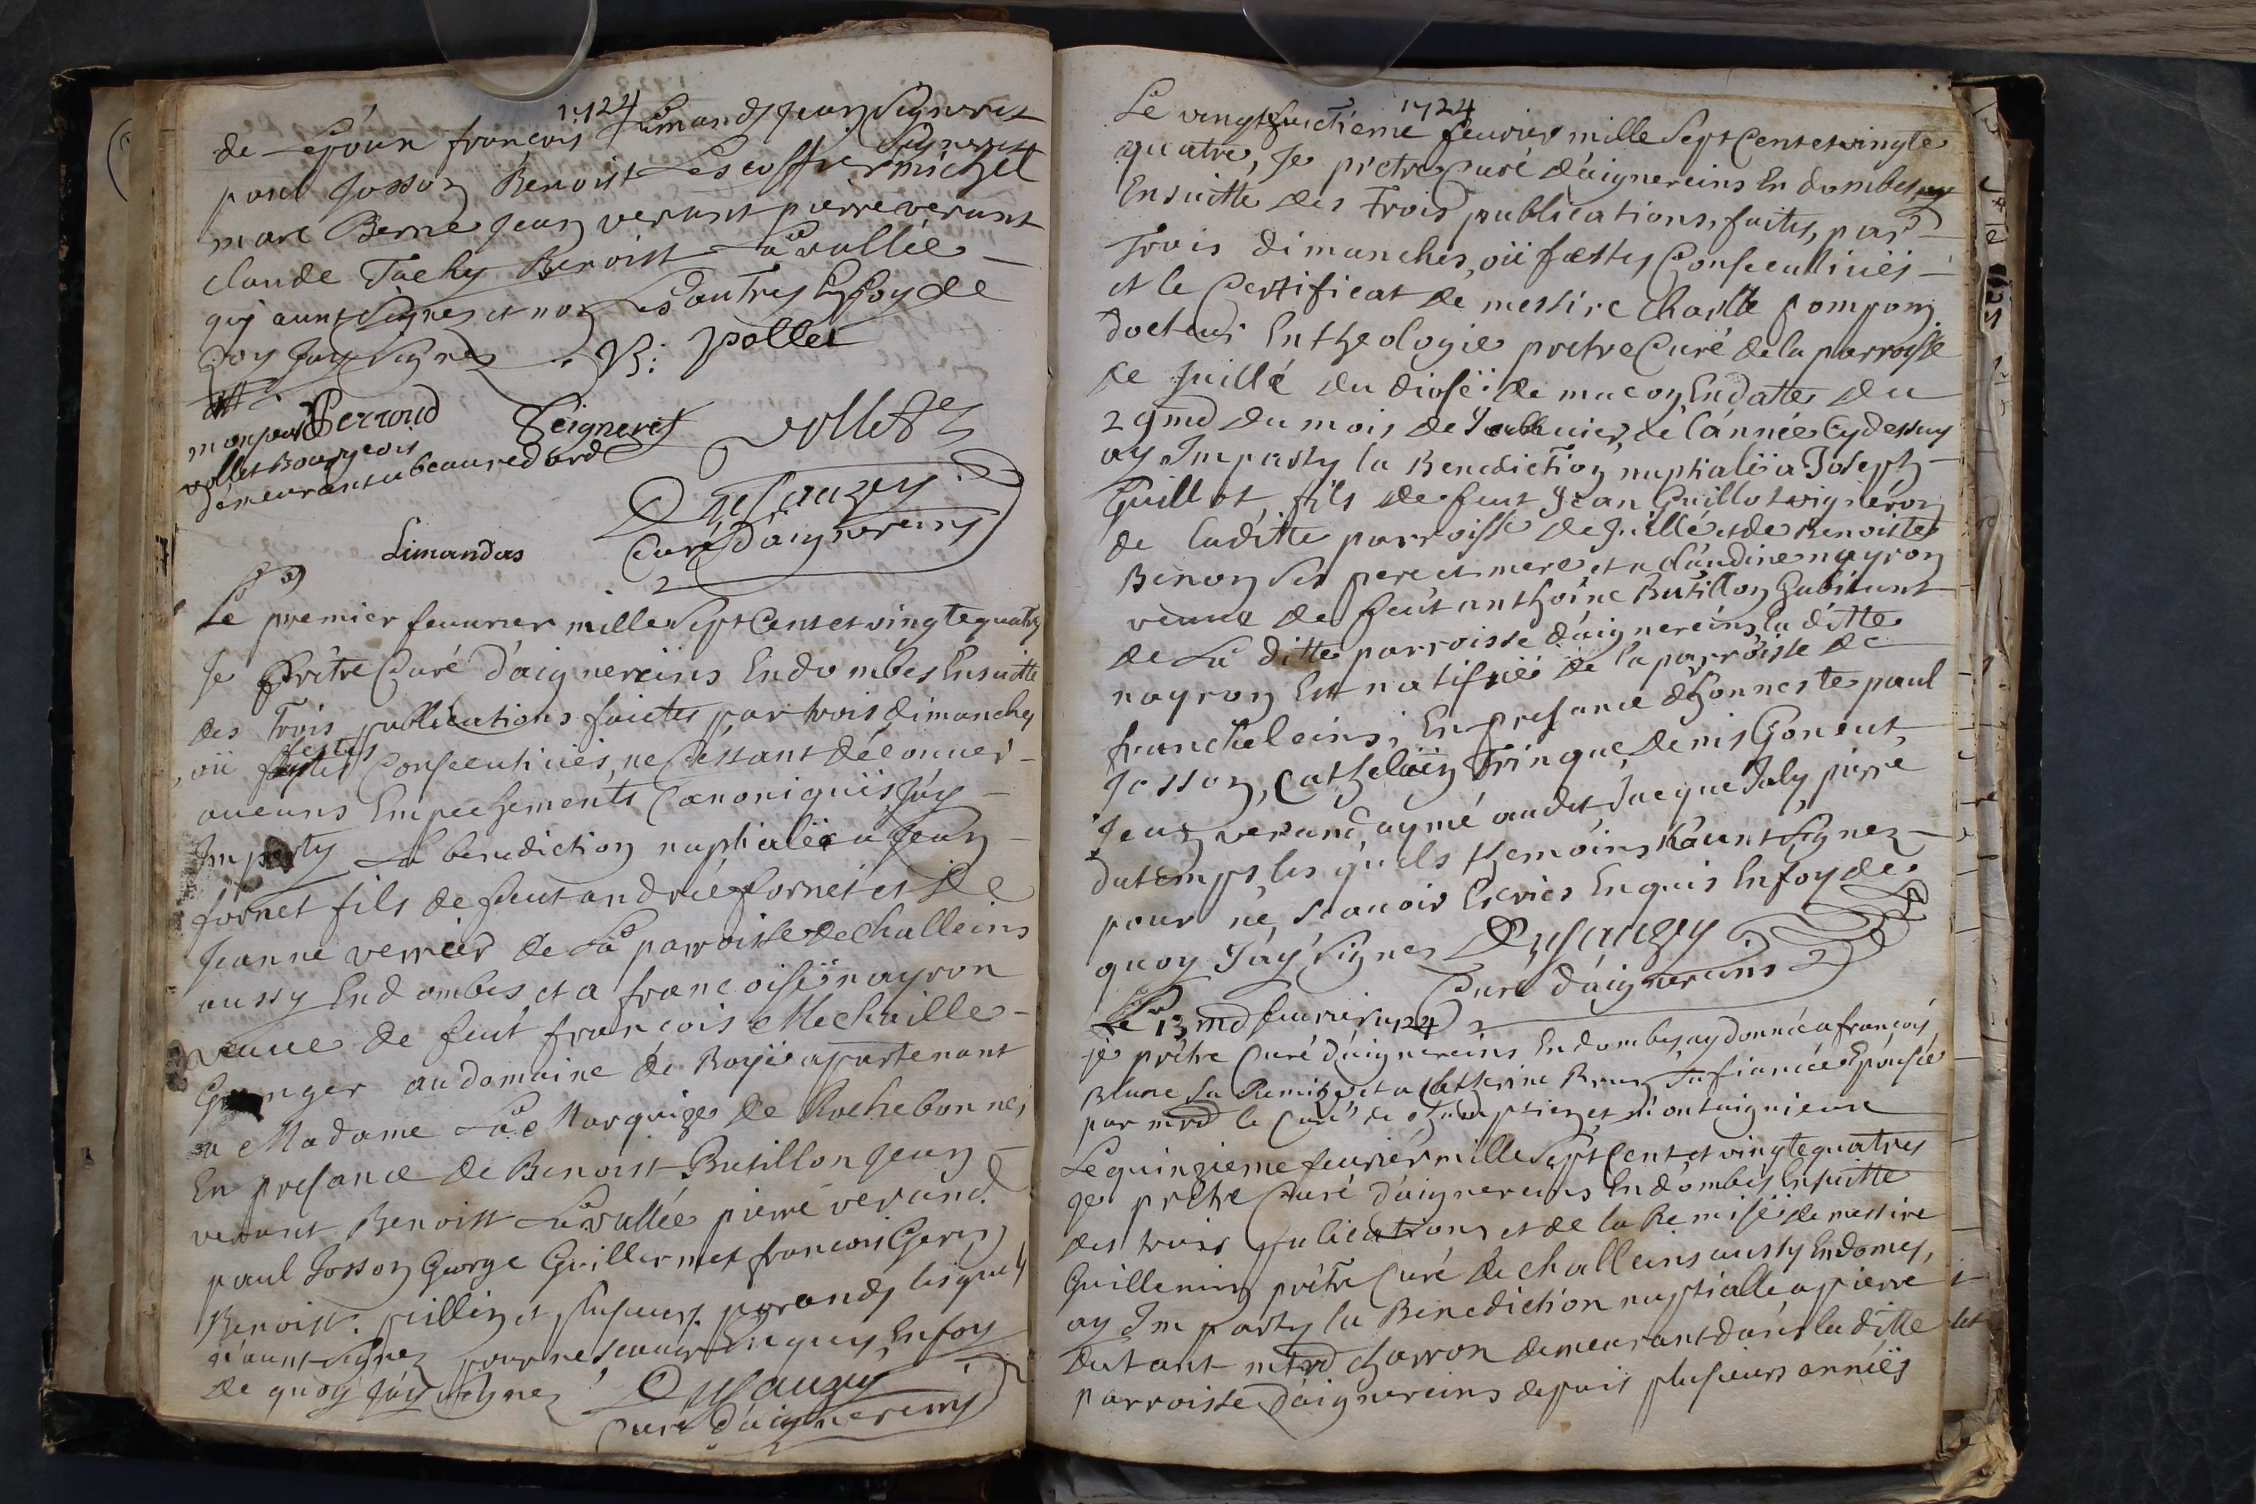 1724
de Lepoúr françois Limands Jean Signeret
paul Josson Benoist Lescoffier michel
marc Berne Jean verant pierre verant
claude Tachy Benoist La vallée
quj aunt Signez et non Les autres En foy de
quoy Jay Signes B: vollet
monsieur Perroud Seigneret vollet
vollet Bourgeois
demeurant a beauregard
Dusauzey
Limandas Curé D'aignereins
Le premier feuurier mille Sept Cent et vingte quatre
Je Prêtre Curé D'aignereins En dombes Ensuitte
des Trois publications faictes par trois dimanches
oü festes Consecutiües, ne Cessant décounér
aucuns Empechements Canoniqüis, J'ay
Imparty La benediction nuptialëe a Jean
fornet fils de feut andréé fornet et de
Jeanne verrier de La parroisse de Challeins
aussy En dombes, et a francoisë nayron
veuue de feut francois Mechaille
Granger au domaine de Royë apartenant
a Madame La Marquize de Rochebonne,
En presance de Benoist Butillon Jean
verant Benoist La vallée pierre verand
paul Josson George Guillermet francois Gerin
Benoist pillin et plusieurs parands lesquels
n'aunt Signez pour ne scauoir Enquis, En foy
de quoy J'ay Signez Dusauzey
Curé d'aignereins
1724
Le vingt huictieme feurier mille Sept Cent et vingte
quatre, Je prêtre Curé d'aignereins En dombes ay
Ensuitte des Trois publications, faites, par
Trois dimanches, oü festes Consecutiüës
et le Certificat de messire Charlle pompon
docteur En theologie pretre Curé de la parroisse
de Juillé du diosë de macon En datte du
29md du mois de Januier, de l'année Cy dessus
ay Imparty la Benediction nuptialë a Joseph
Guillot, fils de feut Jean Guillot vigneron
de laditte parroisse de Juillé et de Benoiste
Benon Ses pere et mere et a Claudine nayron
veuue de feút anthoine Butillon habitant
de La ditte parroisse d'aignereins, la ditte
nayron Est natifuë de la parroisse de
francheleins, En presance d'honneste paul
Josson, Cathelain Trinque, denis Goneut,
Jean verand, aymé audet Jacque Joly pierre
dutemps, les quels themoins n'aunt Signez
pour ne, Scauoir Escrire Enquis En foy de
quoy J'ay Signes Dusauzey
Curé d'aignereins
Le 13md feurier 1724
je prêtre Curé d'aignereins En dombes ay donnée a francois
Blanc Sa Remize et a Catherine Brun Sa fiancée Epousée
par mrd le Curé de champtien et montaignieux
Le quinzieme feurier mille Sept Cent et vingte quatres
je prêtre Curé d'aignereins En dombes Ensuitte
des trois publications et de la Remisë de messire
Guillemin prêtre Curé de challeins aussy En domes,
ay Imparty la Benediction nuptialle a pierre
dutant mrd charron demeurant dans la ditte
parroisse d'aignereins depuis plusieurs annëes